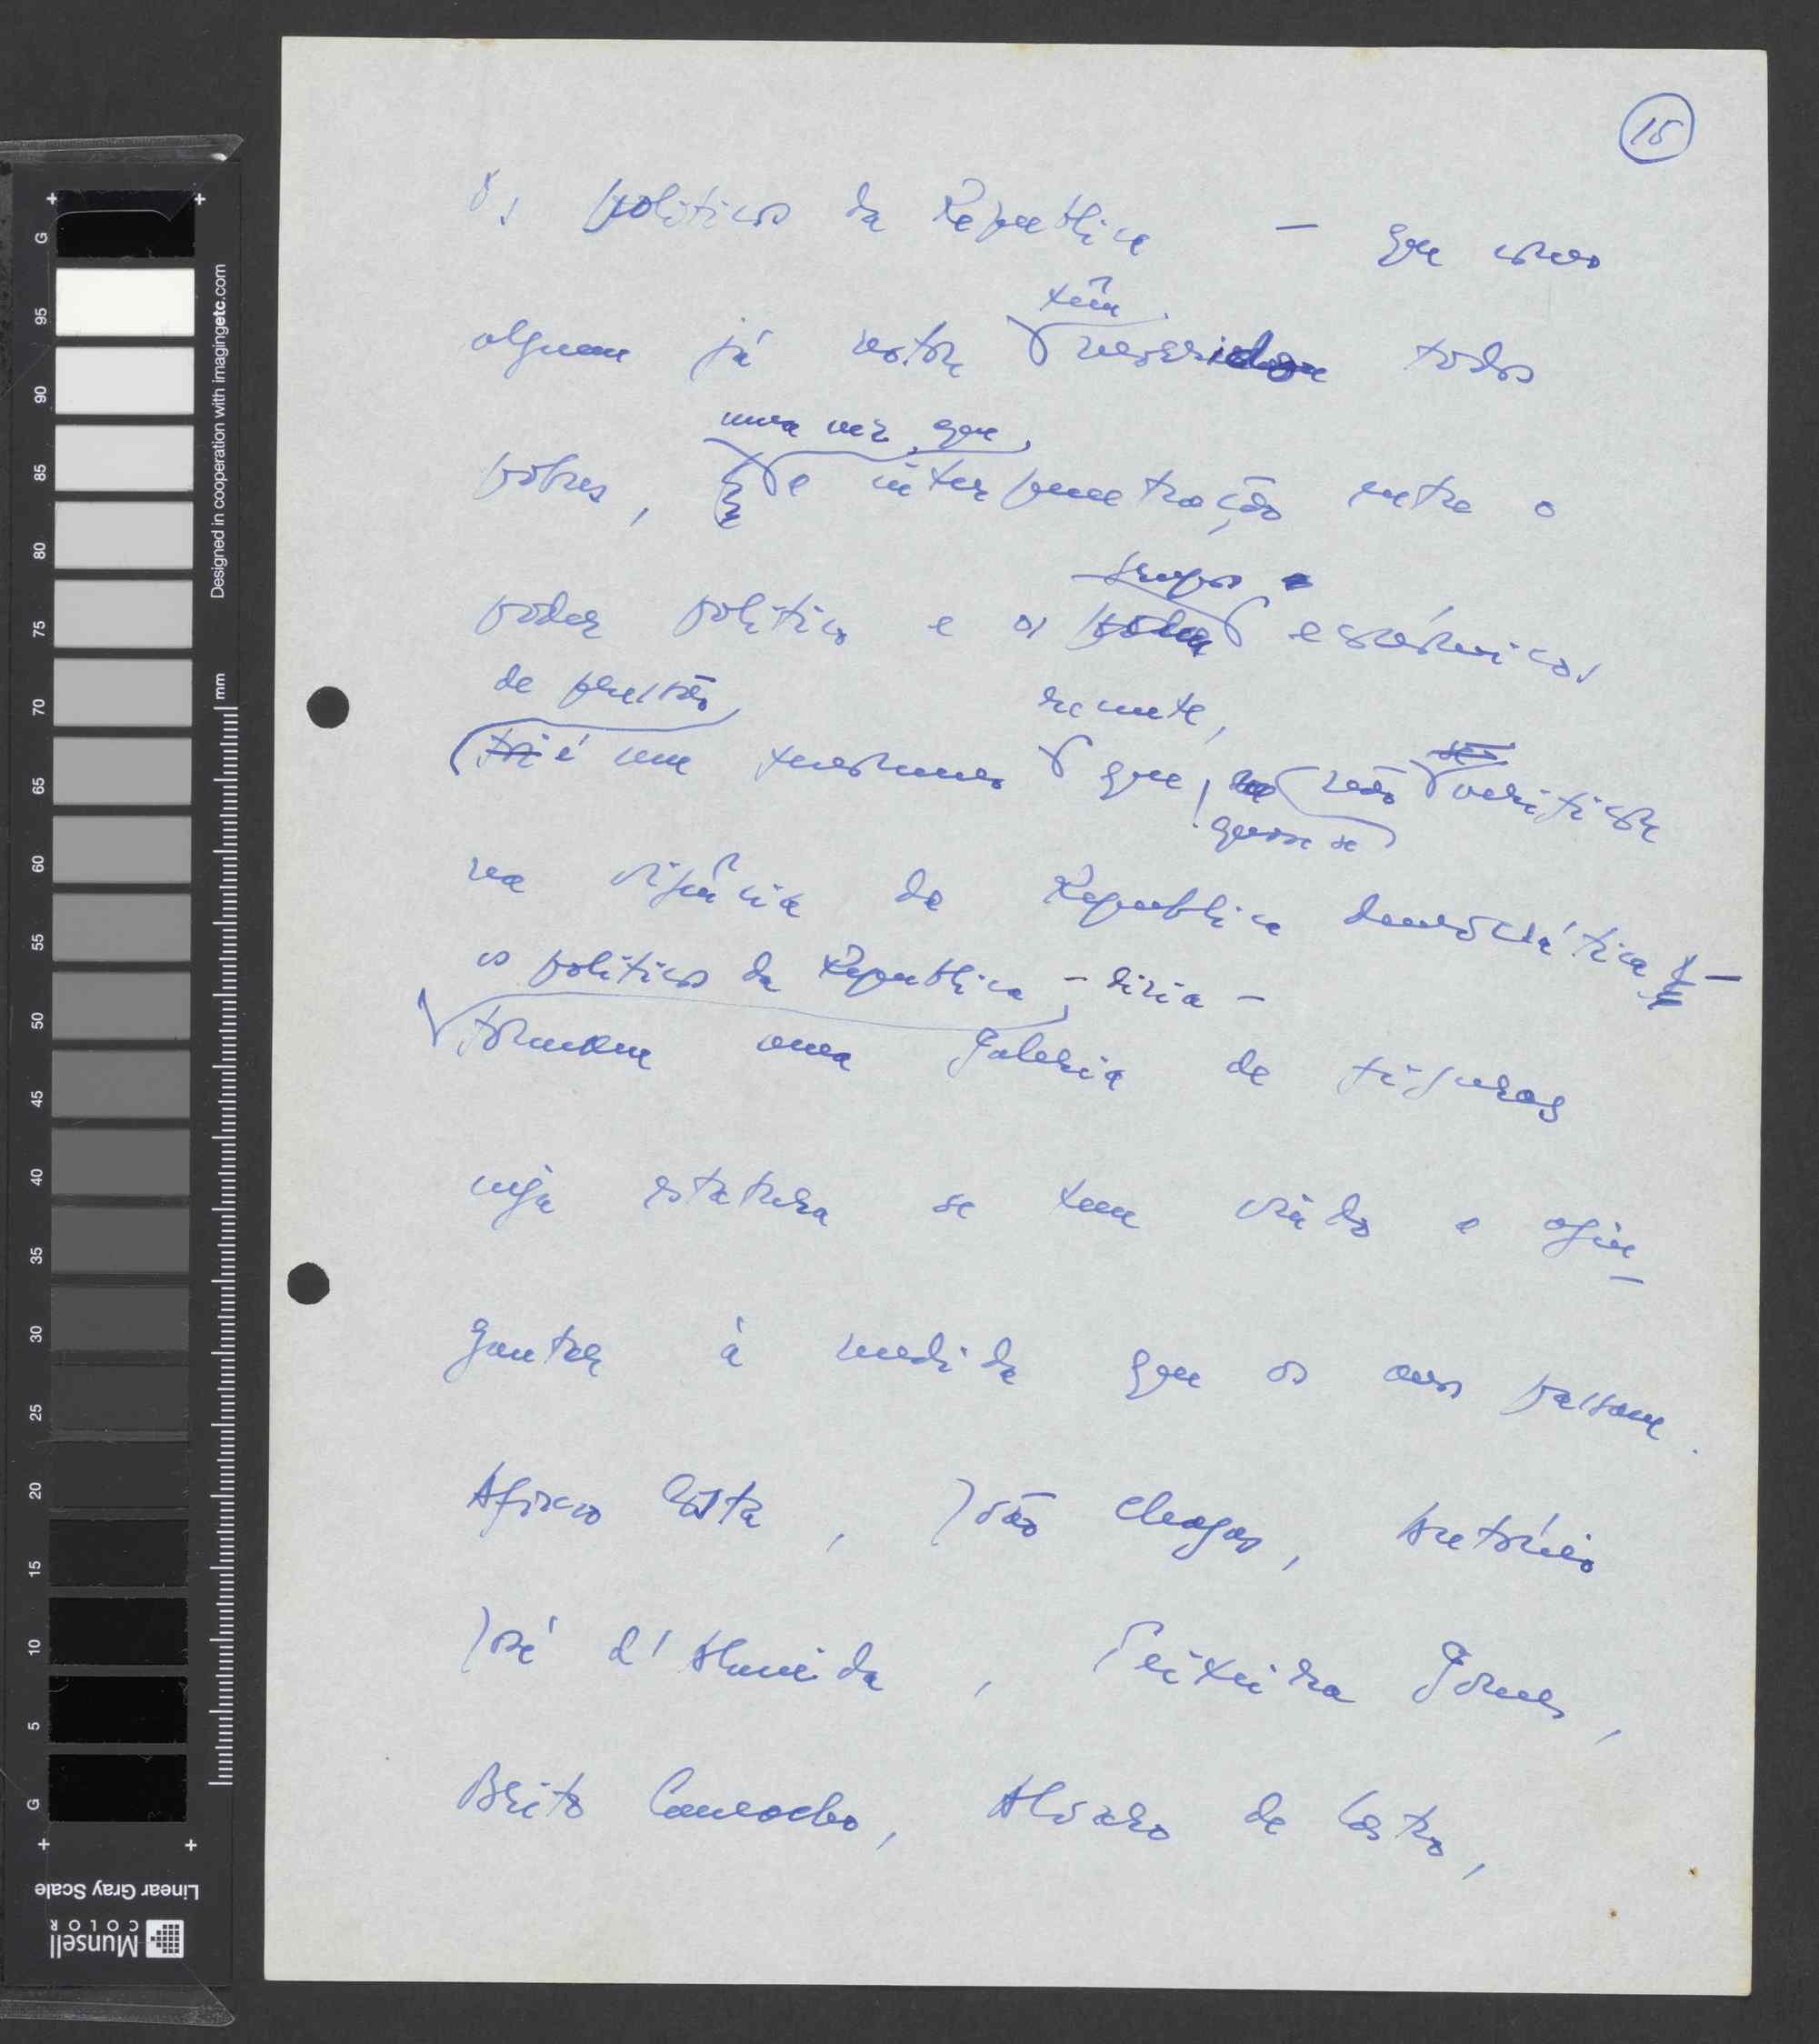 15
Os politicos da Republica — que como
têm
alguem já notou morrido todos
uma vez que
pobres, a interpenetração entre o
grupos
poder politico e os poder económicos
de pressão
foi é um fenómeno recente, que, não verificou
quase se
na vigência da Republica democrática —
os politicos da Republica – diria –
formam uma galeria de figuras
cuja estatura se tem vindo a agi-
gantar à medida que os anos passam.
Afonso Costa, João Chagas, António
José d'Almeida, Teixeira Gomes,
Brito Camacho, Alvaro de Castro,
G 95 90 85 80 75 70 65 60 55 50 45 40 35 30 25 20 15 10 5 G
Designed in cooperation with imagingetc.com
mm
Linear Gray Scale
Munsell
COLOR